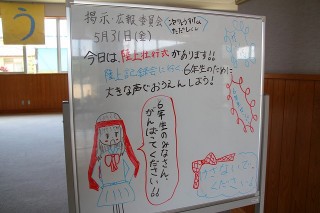 う
掲示・広報委員会
5月31日(金)
今日は、陸上壮行式があります!!
陸上記録会に行く6年生のために
大きな声でおうえんしよう!
6年生のみなさん、
がんばってください!!